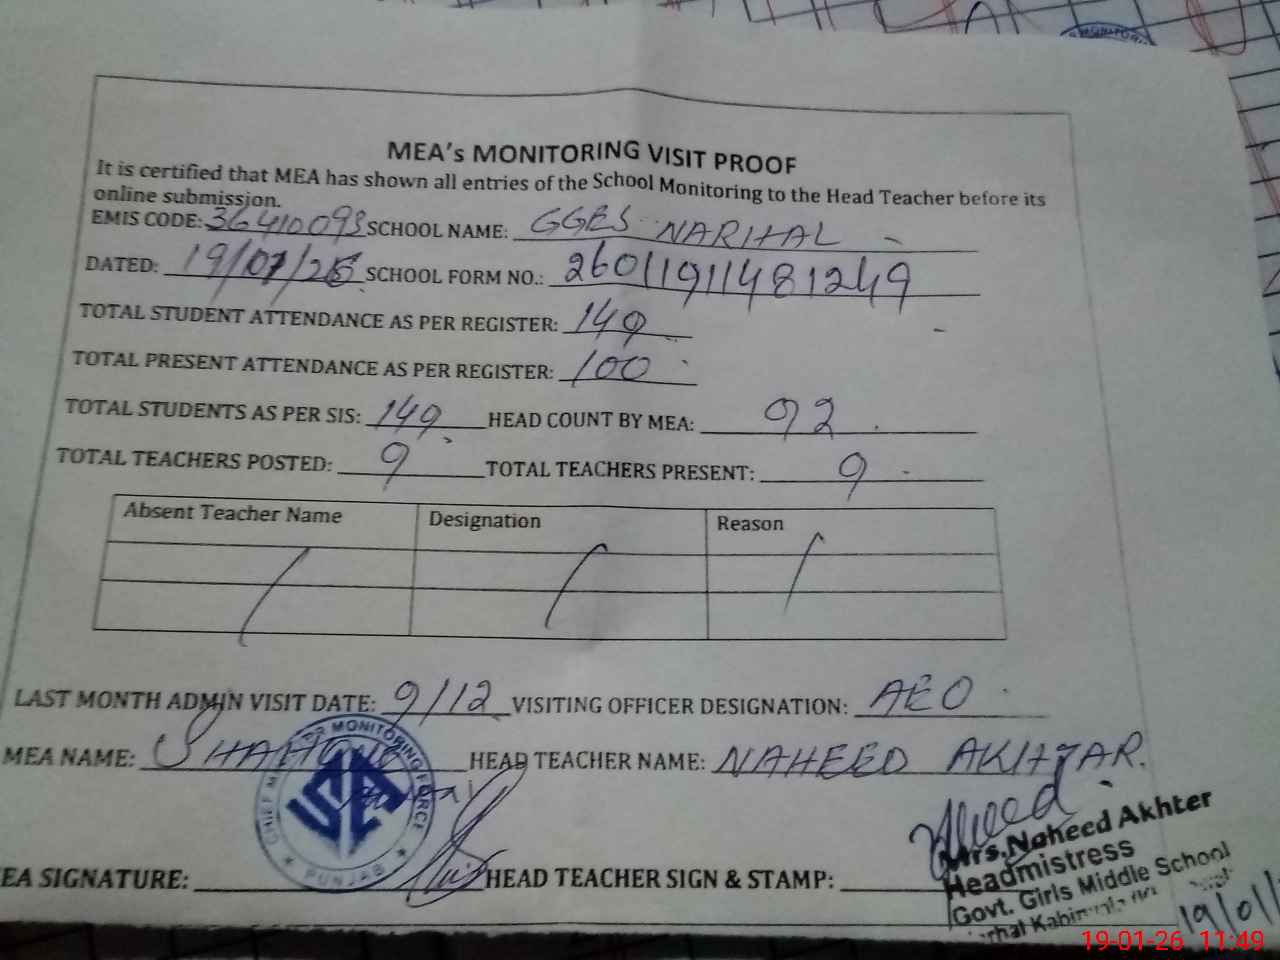 MEA's MONITORING VISIT PROOF
It is certified that MEA has shown all entries of the School Monitoring to the Head Teacher before its
online submission.
EMIS CODE: 36410093 SCHOOL NAME: GGES NARIHAL
DATED: 19/01/26 SCHOOL FORM NO.: 26011911481249
TOTAL STUDENT ATTENDANCE AS PER REGISTER: 149
TOTAL PRESENT ATTENDANCE AS PER REGISTER: 100
TOTAL STUDENTS AS PER SIS: 149 HEAD COUNT BY MEA: 92
TOTAL TEACHERS POSTED: 9 TOTAL TEACHERS PRESENT: 9
Absent Teacher Name Designation Reason
LAST MONTH ADMIN VISIT DATE: 9/12 VISITING OFFICER DESIGNATION: AEO
MEA NAME: HEAD TEACHER NAME: NAHEED AKHTAR.
CHIEF MONITORING FORCE
PUNJAB
EA SIGNATURE: HEAD TEACHER SIGN & STAMP:
Mrs. Naheed Akhter
Headmistress
Govt. Girls Middle School
19/01/
19-01-26 11:49